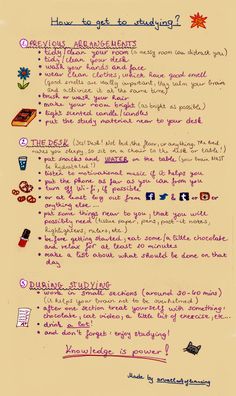 How to get to studying?
① PREVIOUS ARRANGEMENTS
• tidy/clean your room (a messy room can distract you)
• tidy/clean your desk
• wash your hands and face
• wear clean clothes, which have good smell
(good smells are really important, they calm your brain
and activize it at the same time)
• brush or wash your hair
• make your room bright (as bright as possible)
• light scented candle/candles
• put the study material near to your desk
② THE DESK (Yes! Desk! Not bed, the floor, or anything. The bed
makes you sleepy, so sit on a chair at the desk or table!)
• put snacks and WATER on the table (your brain MUST
be hydrated!)
• listen to motivational music, if it helps you
• put the phone as far as you can from you
• turn off Wi-fi, if possible
• or at least log out from or
anything else...
• put some things near to you, that you will
possibly need (tissue paper, pens, post-it notes,
highlighters, rulers, etc.)
• before getting started, eat some/a little chocolate
and relax for at least 10 minutes
• make a list about what should be done on that
day
③ DURING STUDYING
• work in small sections (around 20-40 mins)
(it helps your brain not to be overwhelmed)
• after one section treat yourself with something:
chocolate, cat video, a little bit of exercise, etc...
• drink a lot!
• and don't forget: enjoy studying!
Knowledge is power!
Made by